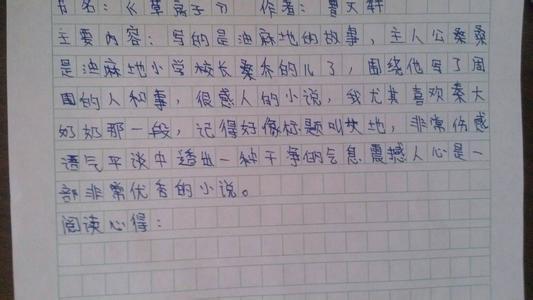 书名：《草房子》 作者：曹文轩
主要内容：写的是油麻地的故事，主人公桑桑
是油麻地小学校长桑乔的儿子，围绕他写了周
围的人和事，很感人的小说，我尤其喜欢秦大
奶奶那一段，记得好像标题叫艾地，非常伤感
语气平谈中透出一种干净的气息震撼人心是一
部非常优香的小说。
阅读心得：